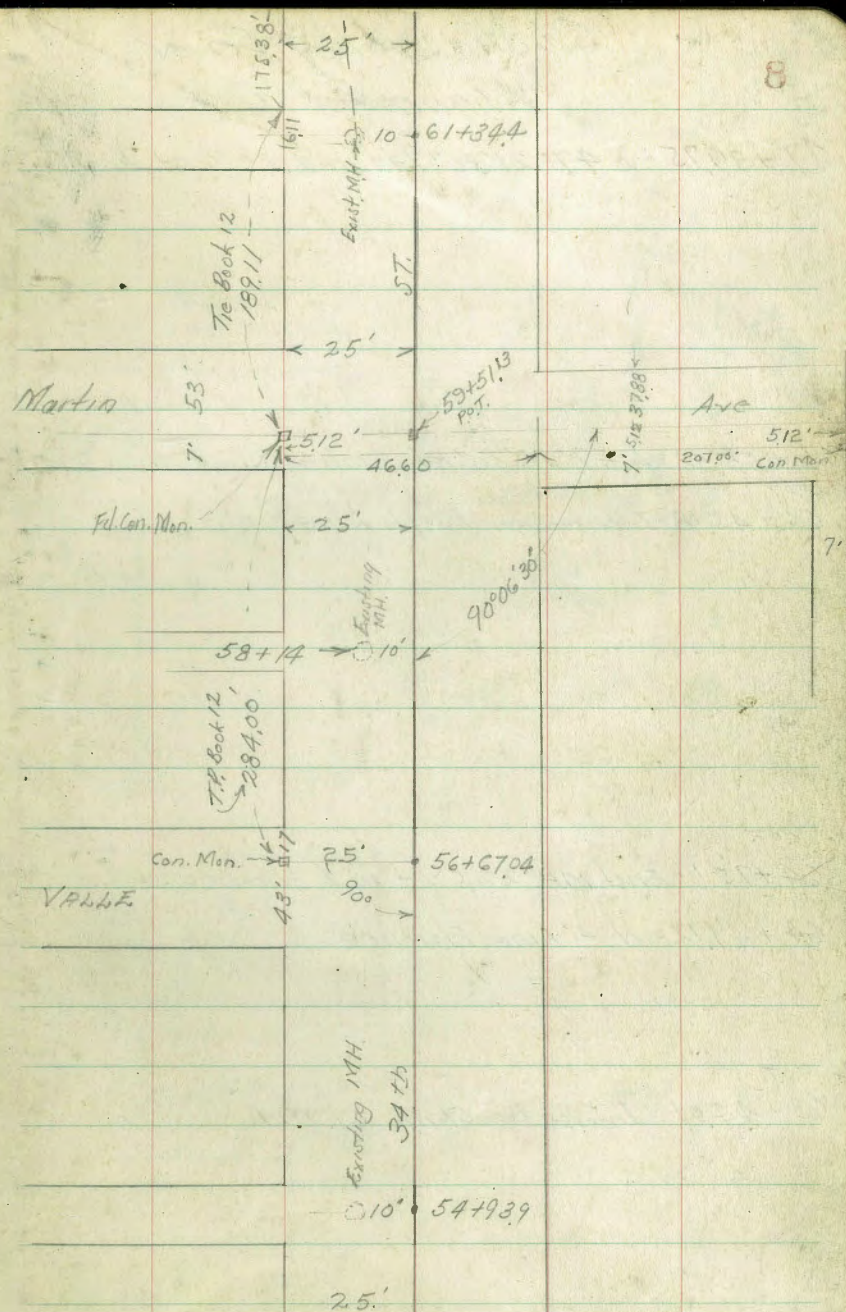 8
176.38'
25'
Exist. MH
10
61+34.4
16.11
Tie Book 12
189.11
ST.
25'
59+51.13
P.O.T.
Martin
7'
53'
5.12'
46.60
7'
5.12
37.88
Ave
5.12'
207.00'
Con. Mon.
7'
Fd. Con. Mon.
25'
Existing
MH.
90°06'30"
58+14
10'
T.P. Book 12,
284.00
Con. Mon.
17
25'
56+67.04
VALLE
43'
90°
Existing MH
34th
10'
54+93.9
25'